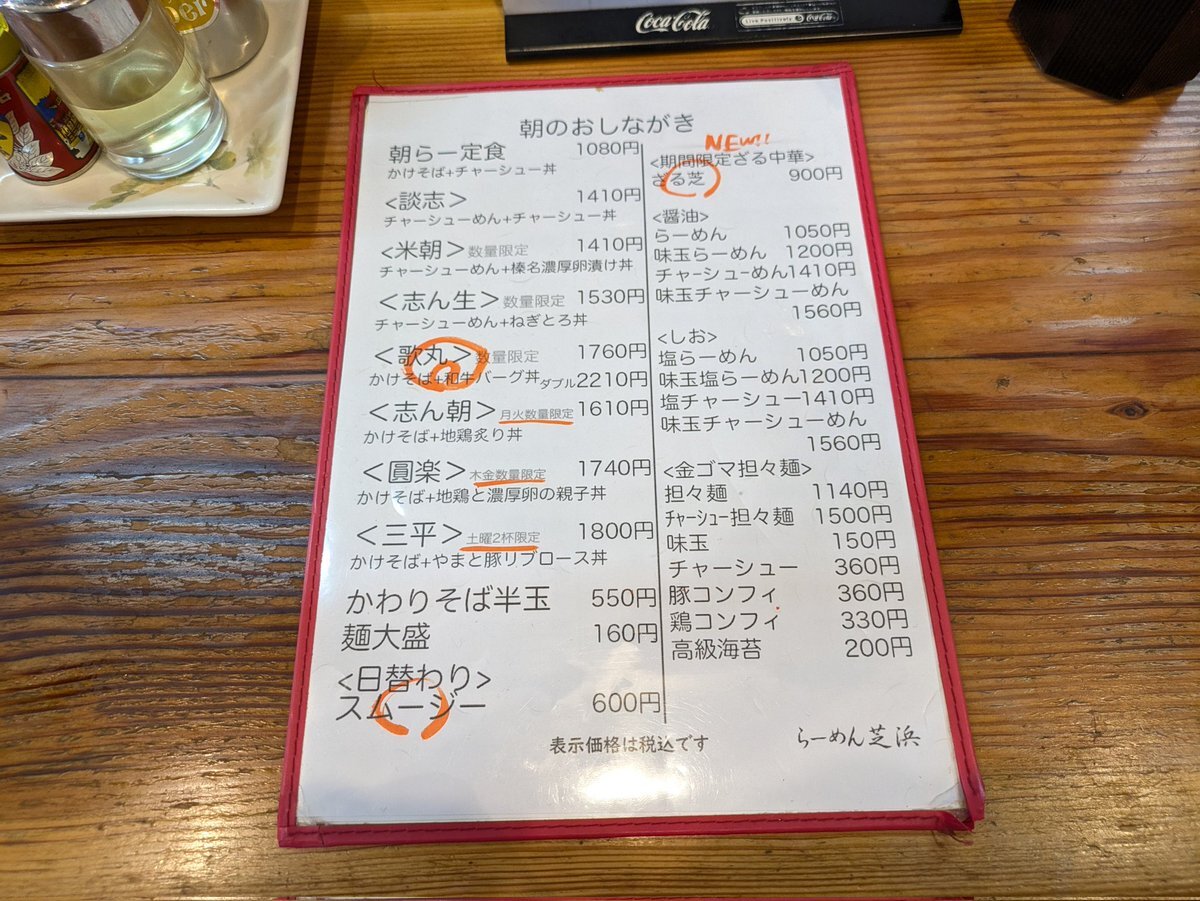 Coca-Cola
Live Positively
Coca-Cola
朝のおしながき
朝らー定食 1080円
かけそば+チャーシュー丼
<談志> 1410円
チャーシューめん+チャーシュー丼
<米朝>数量限定 1410円
チャーシューめん+榛名濃厚卵漬け丼
<志ん生>数量限定 1530円
チャーシューめん+ねぎとろ丼
<歌丸>数量限定 1760円
かけそば+和牛バーグ丼 ダブル2210円
<志ん朝>月火数量限定 1610円
かけそば+地鶏炙り丼
<圓楽>木金数量限定 1740円
かけそば+地鶏と濃厚卵の親子丼
<三平>土曜2杯限定 1800円
かけそば+やまと豚リブロース丼
かわりそば半玉 550円
麺大盛 160円
<日替わり>
スムージー 600円
NEW!!
<期間限定ざる中華>
ざる芝 900円
<醤油>
らーめん 1050円
味玉らーめん 1200円
チャーシューめん1410円
味玉チャーシューめん
1560円
<しお>
塩らーめん 1050円
味玉塩らーめん1200円
塩チャーシュー1410円
味玉チャーシューめん
1560円
<金ゴマ担々麺>
担々麺 1140円
ﾁｬｰｼｭｰ担々麺 1500円
味玉 150円
チャーシュー 360円
豚コンフィ 360円
鶏コンフィ 330円
高級海苔 200円
表示価格は税込です
らーめん芝浜